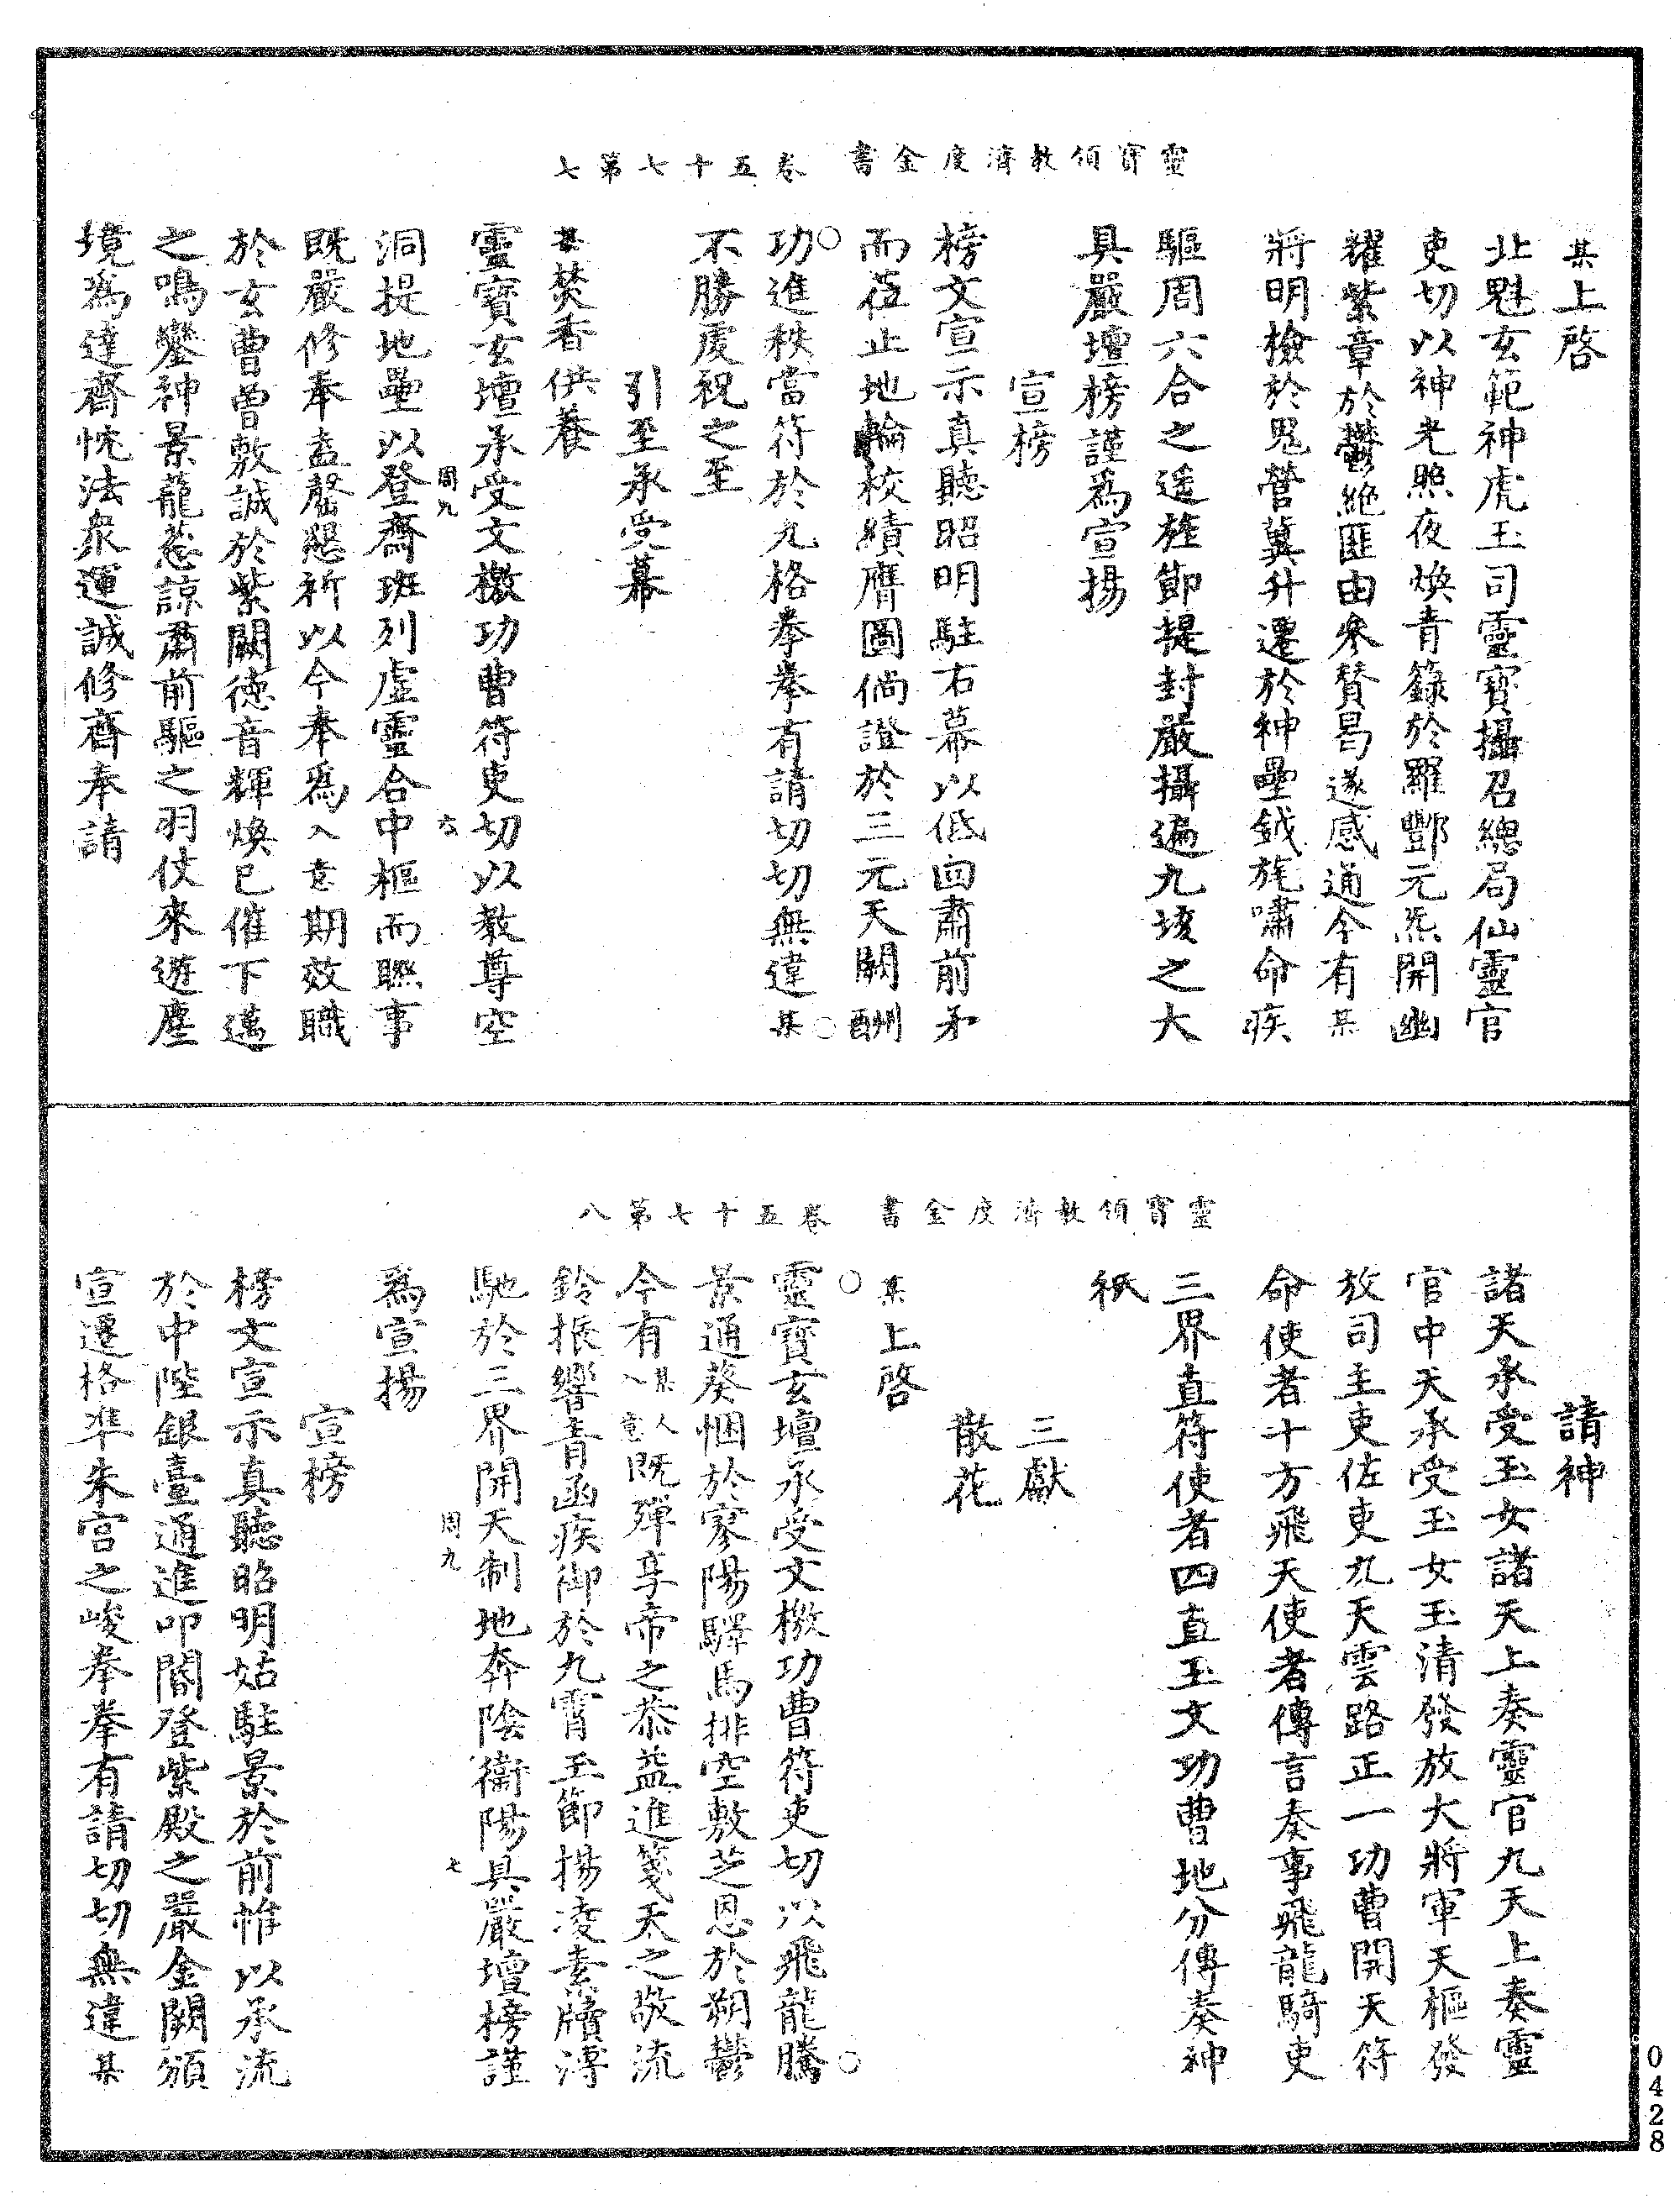 靈寶領教濟度金書　卷五十七第七
某上啓
北魁玄範神虎玉司靈寶攝召總局仙靈官
吏切以神光照夜煥青籙於羅酆元炁開幽
耀紫章於鬱絶匪由參贊曷遂感通今有某
將明檢於鬼營冀升遷於神壘鉞旄嘯命疾
驅周六合之遥旌節提封嚴攝遍九垓之大
具嚴壇榜謹爲宣揚
宣榜
榜文宣示真聽昭明駐右幕以低回肅前矛
而莅止地輪校績膺圖倘證於三元天闕酬
功進秩當符於九格拳拳有請切切無違某
不勝虔祝之至
引至承受幕
某焚香供養
靈寶玄壇承受文檄功曹符吏切以教尊空
洞提地壘以登齋班列虛靈合中樞而聮事
既嚴修奉盍罄懇祈以今奉爲入意期效職
於玄曹曾敷誠於紫闕德音輝煥已催下邁
之鳴鑾神景蘢葱諒肅前驅之羽仗來遊塵
境爲達齋忱法衆運誠修齋奉請
周九
六
靈寶領教濟度金書　卷五十七第八
請神
諸天承受玉女諸天上奏靈官九天上奏靈
官中天承受玉女玉清發放大將軍天樞發
放司主吏佐吏九天雲路正一功曹開天符
命使者十方飛天使者傳言奏事飛龍騎吏
三界直符使者四直玉文功曹地分傳奏神
祇
三獻
散花
某上啓
靈寶玄壇承受文檄功曹符吏切以飛龍騰
景通葵悃於寥陽驛馬排空敷芝恩於朔鬱
今有某人入意既殫享帝之恭益進箋天之敬流
鈴振響青函疾御於九霄玉節揚凌素牘溥
馳於三界開天制地奔陰衞陽具嚴壇榜謹
爲宣揚
宣榜
榜文宣示真聽昭明姑駐景於前帷以承流
於中陛銀臺通進叩閽登紫殿之嚴金闕頒
宣遷格準朱宫之峻拳拳有請切切無違某
周九
七
0428